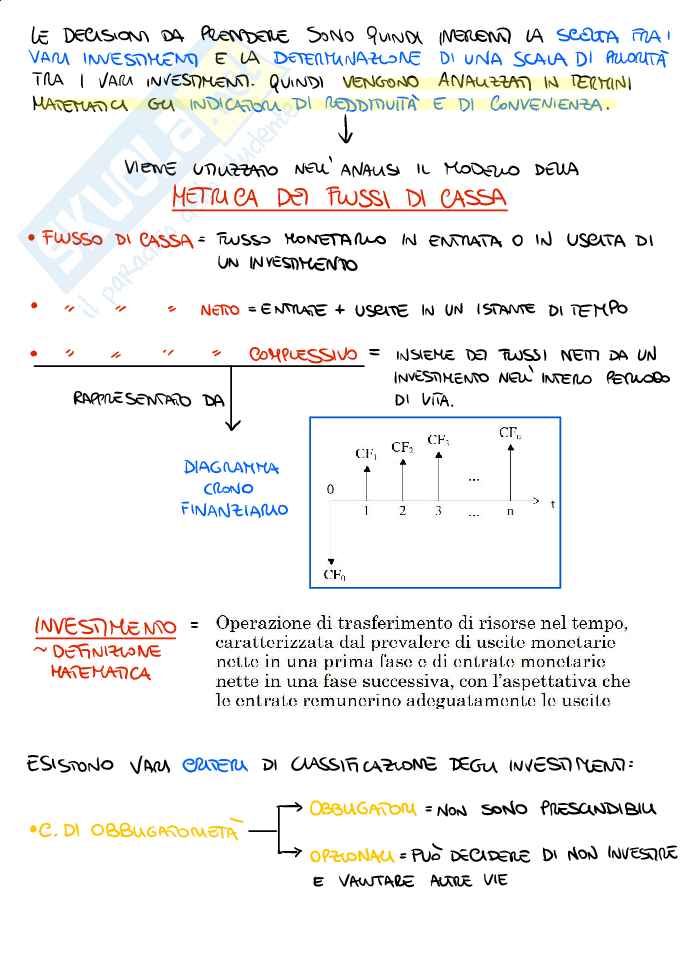 LE DECISIONI DA PRENDERE SONO QUINDI INERENTI LA SCELTA TRA I
VARI INVESTIMENTI E LA DETERMINAZIONE DI UNA SCALA DI PRIORITÀ
TRA I VARI INVESTIMENTI. QUINDI VENGONO ANALIZZATI IN TERMINI
MATEMATICI GLI INDICATORI DI REDDITIVITÀ E DI CONVENIENZA.
VIENE UTILIZZATO NELL'ANALISI IL MODELLO DELLA
METRICA DEI FLUSSI DI CASSA
• FLUSSO DI CASSA = FLUSSO MONETARIO IN ENTRATA O IN USCITA DI
UN INVESTIMENTO
• " " " NETTO = ENTRATE + USCITE IN UN ISTANTE DI TEMPO
• " " " " COMPLESSIVO = INSIEME DEI FLUSSI NETTI DA UN
INVESTIMENTO NELL'INTERO PERIODO
DI VITA.
RAPPRESENTATO DA
DIAGRAMMA
CRONO
FINANZIARIO
CF1 CF2 CF3 ... CFn
0 1 2 3 ... n t
CF0
INVESTIMENTO =
~ DEFINIZIONE
MATEMATICA
Operazione di trasferimento di risorse nel tempo,
caratterizzata dal prevalere di uscite monetarie
nette in una prima fase e di entrate monetarie
nette in una fase successiva, con l'aspettativa che
le entrate remunerino adeguatamente le uscite
ESISTONO VARI CRITERI DI CLASSIFICAZIONE DEGLI INVESTIMENTI:
• C. DI OBBLIGATORIETÀ
OBBLIGATORI = NON SONO PRESCINDIBILI
OPZIONALI = PUÒ DECIDERE DI NON INVESTIRE
E VALUTARE ALTRE VIE
SKUOLA.net
il paradiso dello studente